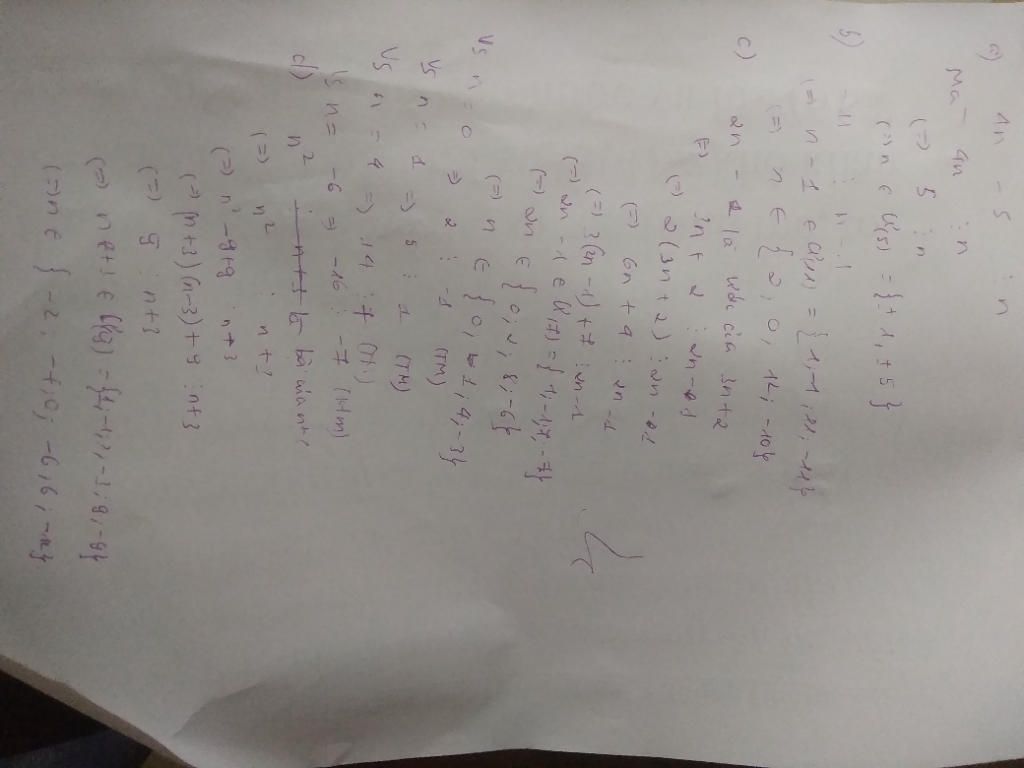 a) 4n - 5 ⋮ n
Mà 4n ⋮ n
(=) 5 ⋮ n
(=) n ∈ Ư(5) = {±1, ±5}
b) -11 ⋮ n - 1
(=) n - 1 ∈ Ư(11) = {1, -1, 11, -11}
(=) n ∈ {2; 0; 12; -10}
c) 2n - 1 là ước của 3n+2
(=) 3n + 2 ⋮ 2n - 1
(=) 2(3n+2) ⋮ 2n - 1
(=) 6n + 4 ⋮ 2n - 1
(=) 3(2n - 1) + 7 ⋮ 2n - 1
(=) 2n - 1 ∈ Ư(7) = {1, -1, 7, -7}
(=) 2n ∈ {0, 2, 8, -6}
(=) n ∈ {0, 1, 4, -3}
Vs n = 0 => 2 ⋮ -1 (TM)
Vs n = 1 => 5 ⋮ 1 (TM)
Vs n = 4 => 14 ⋮ 7 (TM)
Vs n = -6 => -16 ⋮ -7
d) n² là bội của n+3
(=) n² ⋮ n + 3
(=) n² - 9 + 9 ⋮ n + 3
(=) (n+3)(n-3) + 9 ⋮ n+3
(=) 9 ⋮ n+3
(=) n + 3 ∈ Ư(9) = {1, -1, 3, -3, 9, -9}
(=) n ∈ {-2; -4; 0; -6; 6; -12}